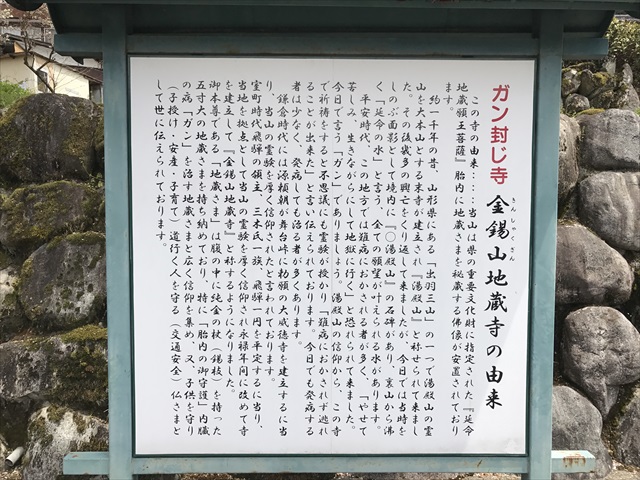 ガン封じ寺 金錫山地蔵寺の由来
きんしゃくざん
この寺の由来‥‥当山は県の重要文化財に指定された『延命
地蔵願王菩薩』胎内に地蔵さまを秘蔵する佛像が安置されており
ます。
約一千年の昔、山形県にある「出羽三山」の一つで湯殿山の霊
山を大本山とする末寺が建立され『湯殿山』と称せられて来まし
た。その後幾多の興亡をくり返して来ましたが、今日では当時を
しのぶ面影として境内に『〇湯殿山』の石碑があり、裏山から佛
く『延命の水』と言う、全ての願望が叶えられる水があります。
平安時代、この地方では難病におかされる者が多く、「やせて
苦しみ、生きながらにして地獄に行く」と恐れられて来ました。
今日で言う「ガン」でありましょう。湯殿山の信仰から、この寺
で祈祷をすると不思議にも霊験が授かり「難病におかされず逃れ
ることが出来た」と言い伝えられております。今日でも発病する
者は少なく、発病しても治る者が多くあります。
鎌倉時代には源頼朝が舞台峠に勅願の大威徳寺を建立するに当
り、当山の霊験を厚く信仰されたと言われております。
室町時代飛騨の領主、三木氏一族、飛騨一円を平定するに当り、
当地を拠点として当山の霊験を厚く信仰され永禄年間に改めて寺
を建立して『金錫山地蔵寺』と称するようになりました。
御本尊である「地蔵さま」は腹の中に純金の杖（錫杖）を持った
五寸大の地蔵さまを持ち納めており、特に「胎内の御守護」内臓
の病「ガン」を治す地蔵さまと広く信仰を集め、又、子供を守り
（子授け・安産・子育て）道行く人を守る（交通安全）仏さまと
して世に伝えられております。